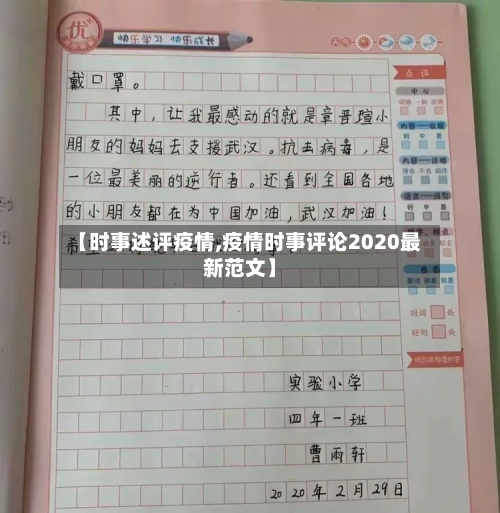 优
快乐学习 快乐成长
天气
点评
戴口罩。
其中，让我最感动的就是章晋瑄小
朋友的妈妈去支援武汉。抗击病毒，是
一位最美丽的逆行者。还看到全国各地
的小朋友都在为中国加油，武汉加油！
【时事述评疫情,疫情时事评论2020最
新范文】
好词 处
好句 处
实验小学
四年一班
曹雨轩
2020年2月29日